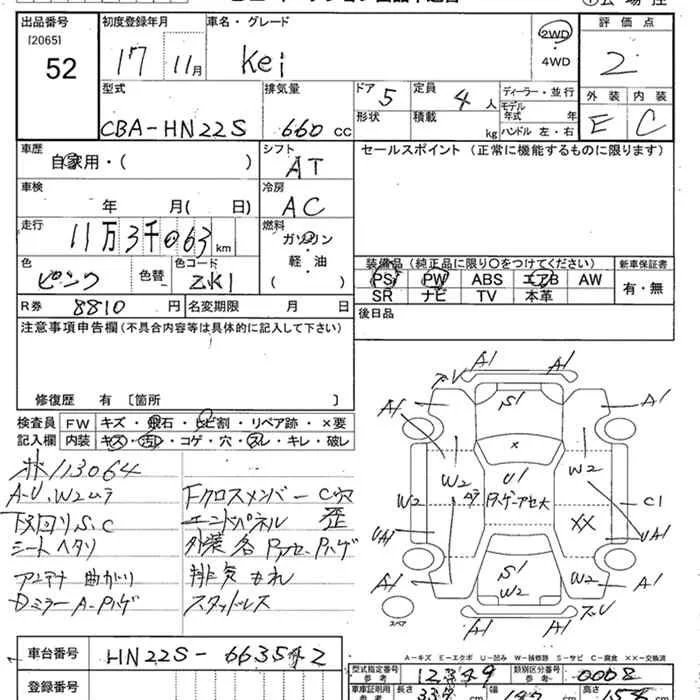 出品番号 初度登録年月 車名・グレード 評価点
[2065]
52 17 11月 Kei 2WD 2
4WD
外装 内装
型式 排気量 ドア 5 定員 4 人 ディーラー・並行
CBA-HN22S 660 cc 形状 積載 kg モデル年式 年 E C
ハンドル 左・右
車歴 シフト セールスポイント (正常に機能するものに限ります)
自家用・( ) AT
車検 冷房
年 月( 日) AC
走行 燃料
11万3千063 km ガソリン
軽・油
色 色替 色コード ( ) 装備品 (純正品に限り○をつけてください) 新車保証書
ピンク ZK1 PS PW ABS エアB AW 有・無
SR ナビ TV 本革
R券 8810 円 名変期限 月 日 後日品
注意事項申告欄(不具合内容等は具体的に記入して下さい)
修復歴 有 〔箇所 〕
検査員 FW キズ・飛石・ヒビ割・リペア跡・×要
記入欄 内装 キズ・汚レ・コゲ・穴・スレ・キレ・破レ
113064
A-U、W2ムラ Fクロスメンバー C穴
下回りS、C エンドパネル 歪
シートヘタリ 外装各Pアセ、Pハゲ
アンテナ曲がり 排気もれ
DミラーA-Pハゲ スタッドレス
A1 A1
ズレ
A1 S1 A1
×
W2 U1 W2
W2 C1
××
UA1 UA1
A1 S1 A1
W2 W2
A1 A1
スペア
A-キズ E-エクボ U-凹み W-補修跡 S-サビ C-腐食 ××-交換
車台番号 HN22S- 型式指定番号 参考 12349 類別区分番号 参考 0008
登録番号 車庫証明用 参考 長さ 339 幅 147 高さ